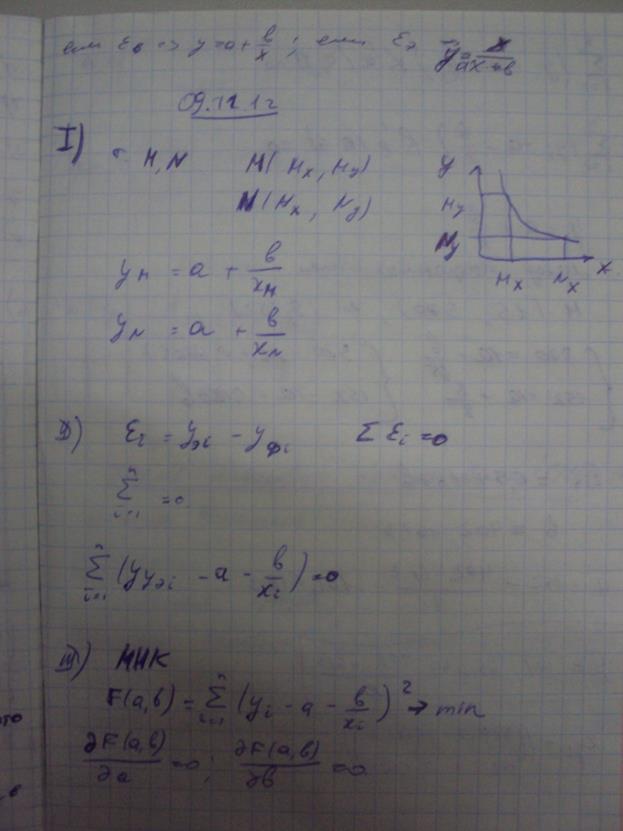 если ε₆ => y = a + в/x ; если ε₇ y = x/(ax+в)
09.12.1г
I)
т M, N M(Mx, My) y
N(Nx, Ny) My
Ny
Mx Nx x
yM = a + в/xM
yN = a + в/xN
II) εi = yэi - yфi Σεi = 0
Σ i=1 n = 0
Σ i=1 n (yэi - a - в/xi) = 0
III) МНК
F(a,в) = Σ i=1 n (yi - a - в/xi)² → min
∂F(a,в)/∂a = 0 ; ∂F(a,в)/∂в = 0